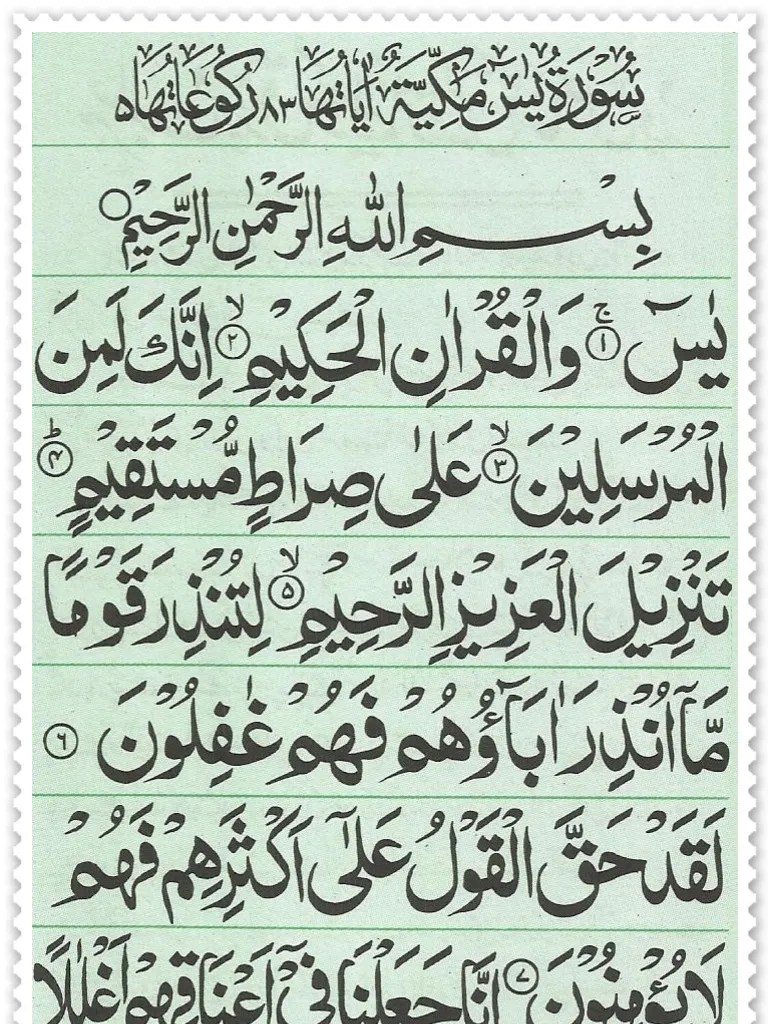 سُوْرَةُ يٰسٓ مَكِّيَّةٌ اٰيَاتُهَا ٨٣ رُكُوْعَاتُهَا ٥
بِسْمِ اللّٰهِ الرَّحْمٰنِ الرَّحِيْمِ ○
يٰسٓ ۚ ﴿١﴾ وَالْقُرْاٰنِ الْحَكِيْمِ ۙ ﴿٢﴾ اِنَّكَ لَمِنَ
الْمُرْسَلِيْنَ ۙ ﴿٣﴾ عَلٰى صِرَاطٍ مُّسْتَقِيْمٍ ؕ ﴿۴﴾
تَنْزِيْلَ الْعَزِيْزِ الرَّحِيْمِ ۙ ﴿۵﴾ لِتُنْذِرَ قَوْمًا
مَّاۤ اُنْذِرَ اٰبَآؤُهُمْ فَهُمْ غٰفِلُوْنَ ﴿٦﴾
لَقَدْ حَقَّ الْقَوْلُ عَلٰۤى اَكْثَرِهِمْ فَهُمْ
لَا يُؤْمِنُوْنَ ﴿٧﴾ اِنَّا جَعَلْنَا فِيْۤ اَعْنَاقِهِمْ اَغْلٰلًا